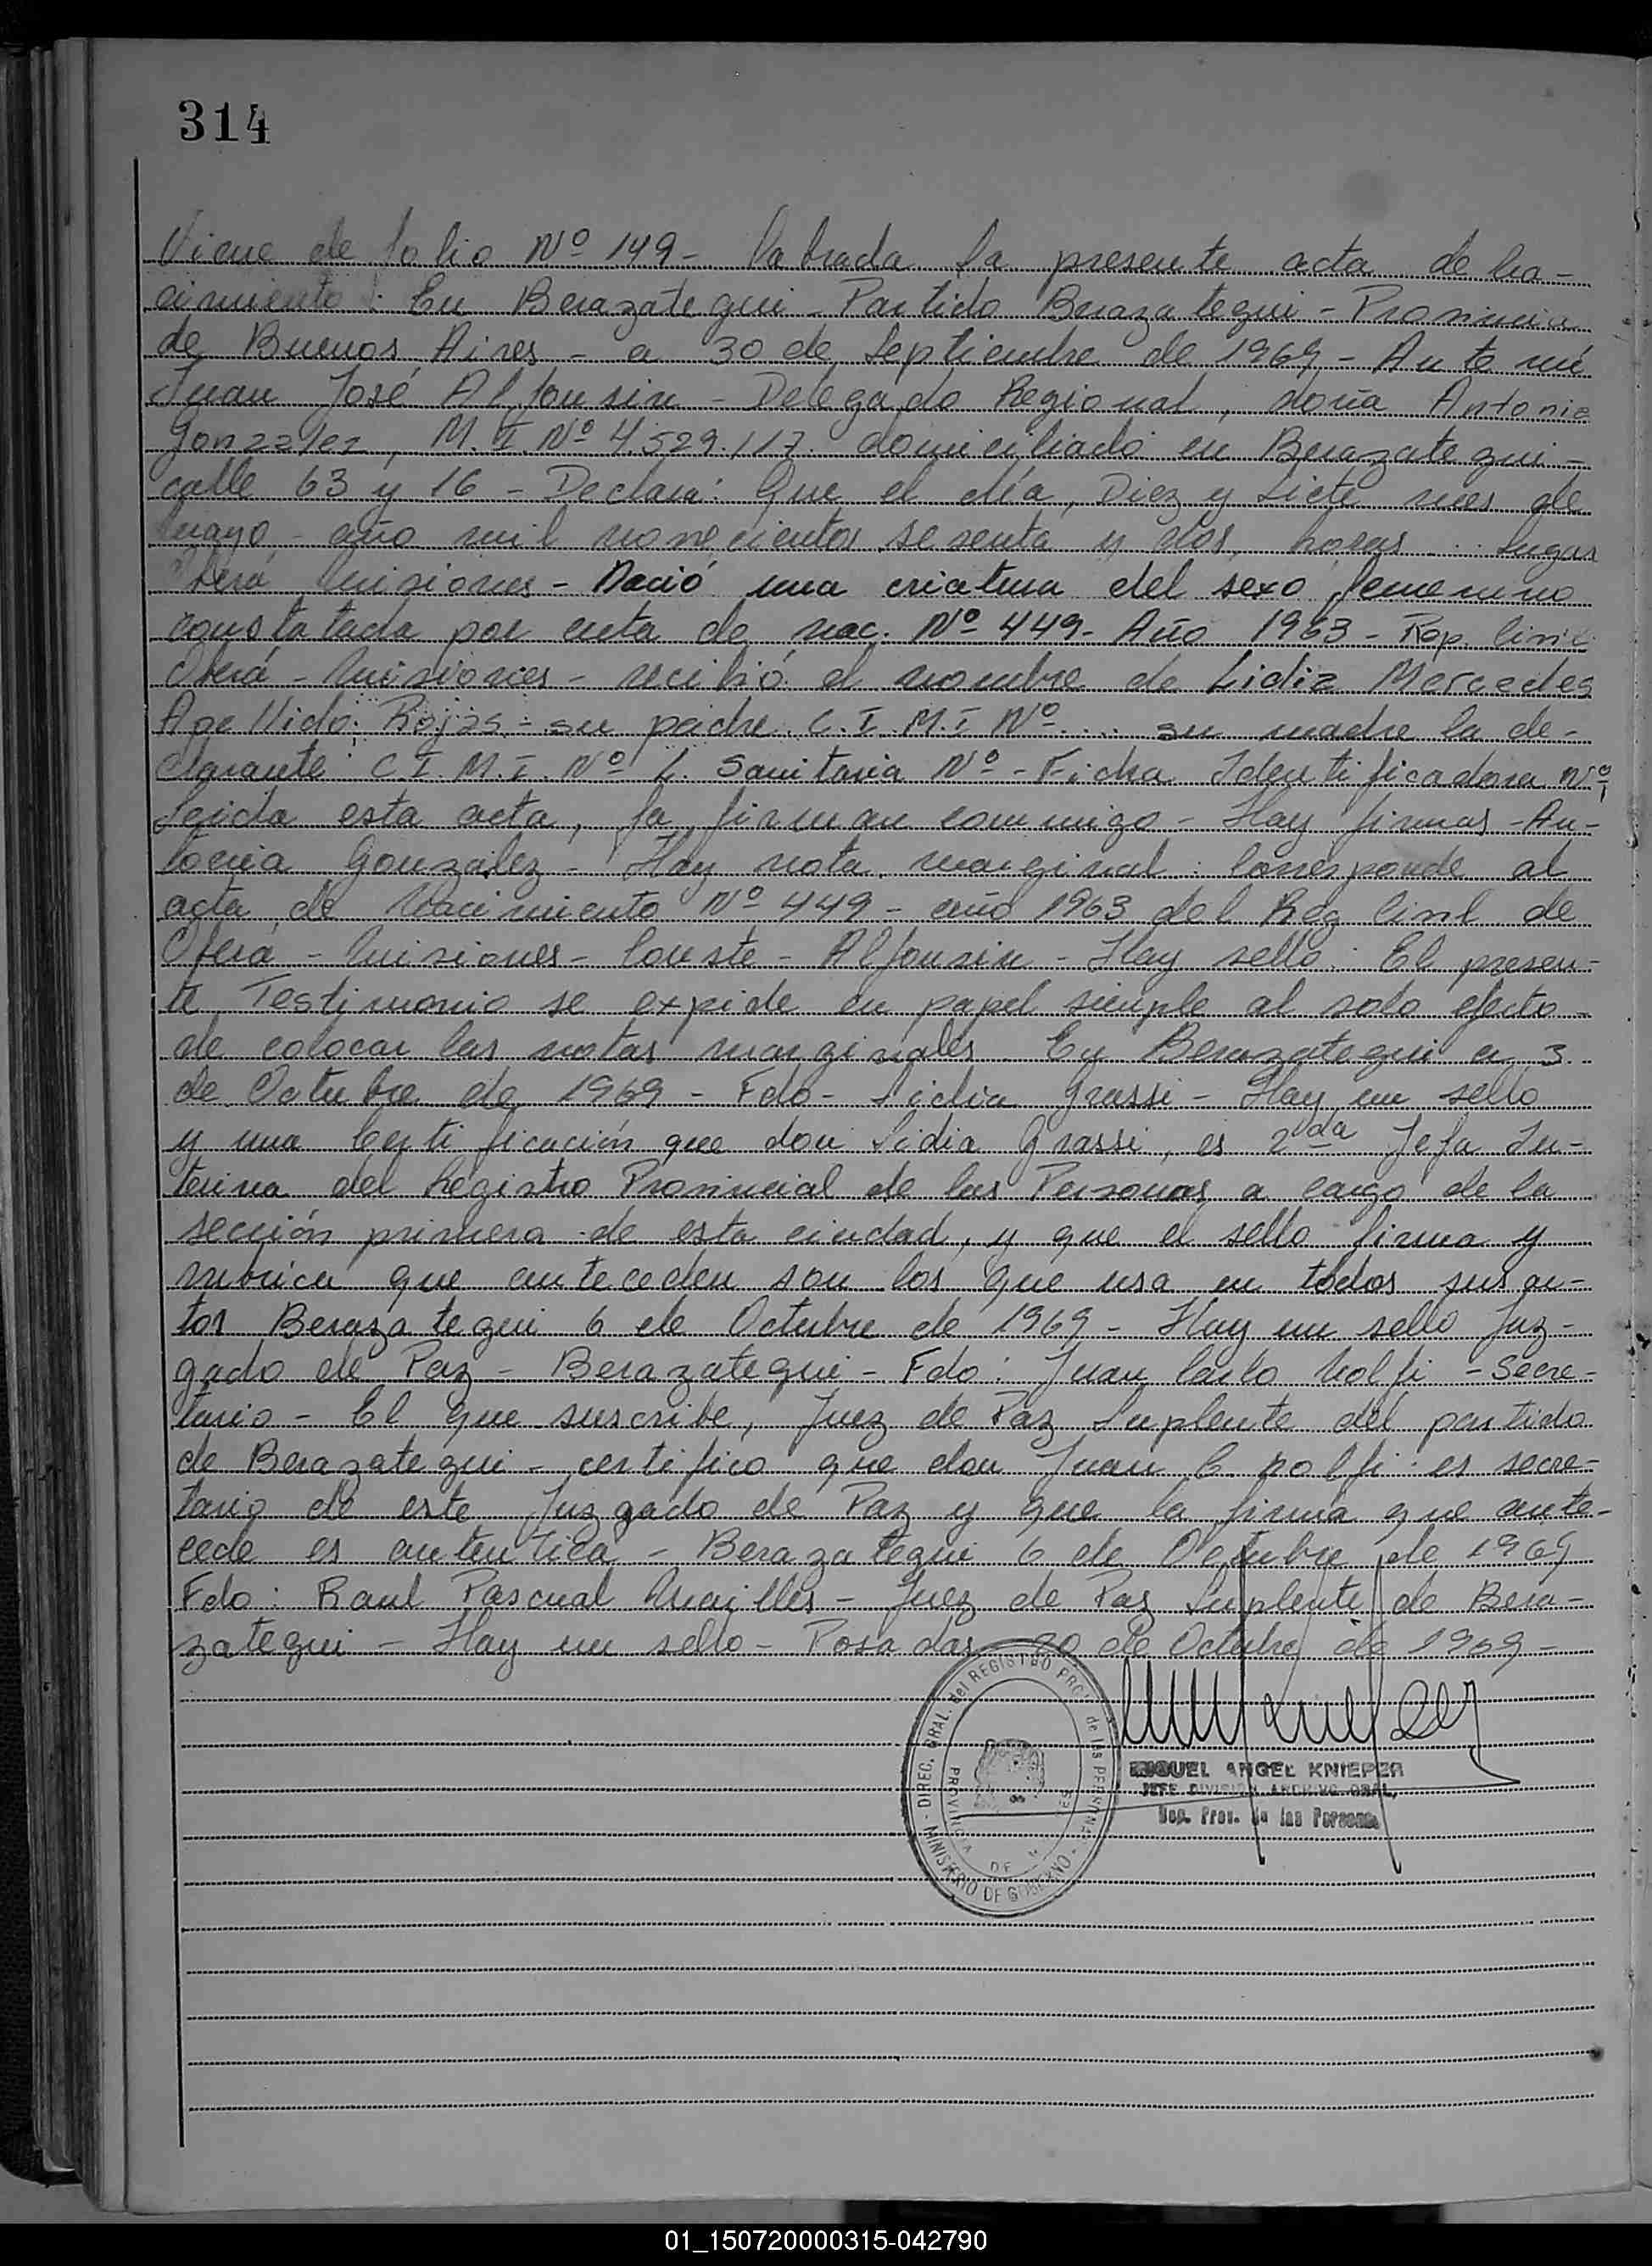 314
Viene de folio Nº 149- labrada la presente acta de na-
cimiento: En Berazategui - Partido Berazategui - Provincia
de Buenos Aires - a 30 de Septiembre de 1969 - Ante mí
Juan José Alfonsin - Delegado Regional, doña Antonia
Gonzalez, M.I. Nº 4.529.117. domiciliado en Berazategui -
calle 63 y 16 - Declara: Que el día, Diez y Siete mes de
mayo - año mil novecientos sesenta y dos, horas ... lugar
Oberá Misiones - Nació una criatura del sexo femenino
constatada por acta de nac. Nº 449- Año 1963 - Rep. Civil
Oberá - Misiones - recibió el nombre de Lidia Mercedes
Apellido: Rojas - su padre C.I. M.I Nº .... su madre la de-
clarante C.I. M.I. Nº L. Sanitaria Nº - Ficha Identificadora Nº
Leida esta acta, la firman conmigo - Hay firmas - An-
tonia Gonzalez - Hay nota marginal: Corresponde al
acta de Nacimiento Nº 449 - año 1963 del Reg Civil de
Oberá - Misiones - Conste - Alfonsin - Hay sello. El presen-
te Testimonio se expide en papel simple al solo efecto -
de colocar las notas marginales En Berazategui a 3..
de Octubre de 1969 - Fdo - Lidia Grassi - Hay un sello
y una Certificación que don Lidia Grassi, es 2da Jefa In-
terina del Registro Provincial de las Personas a cargo de la
sección primera de esta ciudad, y que el sello firma y
rubrica que anteceden son los que usa en todos sus ac-
tos Berazategui 6 de Octubre de 1969 - Hay un sello Juz-
gado de Paz - Berazategui - Fdo: Juan Carlo Nolfi - Secre-
tario - El que suscribe, Juez de Paz Suplente del partido
de Berazategui - certifico que don Juan C. Nolfi es secre-
tario de este Juzgado de Paz y que la firma que ante-
cede es autentica - Berazategui 6 de Octubre de 1969
Fdo: Raul Pascual - Juez de Paz Suplente de Bera-
zategui - Hay un sello - Posadas 20 de Octubre de 1969 -
DIREC. GRAL. del REGISTRO PROV. de las PERSONAS
MINISTERIO DE GOBIERNO
PROVINCIA DE
MIGUEL ANGEL KNIEPER
JEFE DIVISION ARCHIVO GRAL.
Reg. Prov. de las Personas
01_150720000315-042790